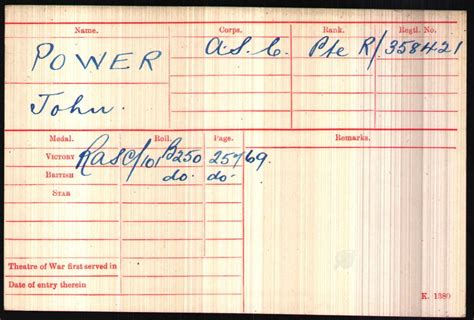 Name. Corps. Rank. Regtl. No.
POWER A.S.C. Pte R/358421
John.
Medal. Roll. Page. Remarks.
VICTORY RASC/101 B250 25769.
BRITISH do. do.
STAR
Theatre of War first served in
Date of entry therein
K. 1380